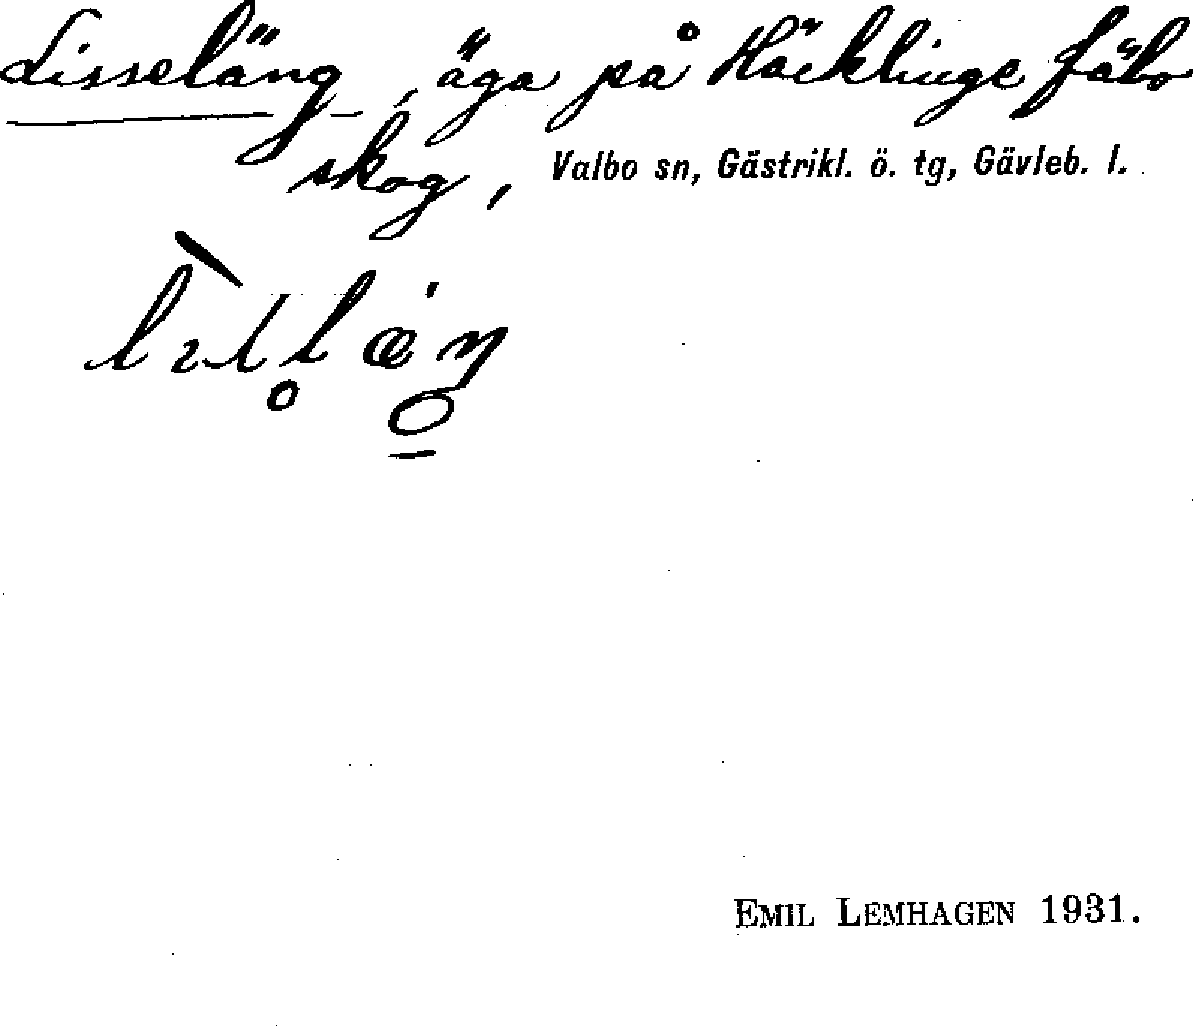 Lisseläng, äga på Häcklinge fäbo
skog, Valbo sn, Gästrikl. ö. tg, Gävleb. l.
EMIL LEMHAGEN 1931.